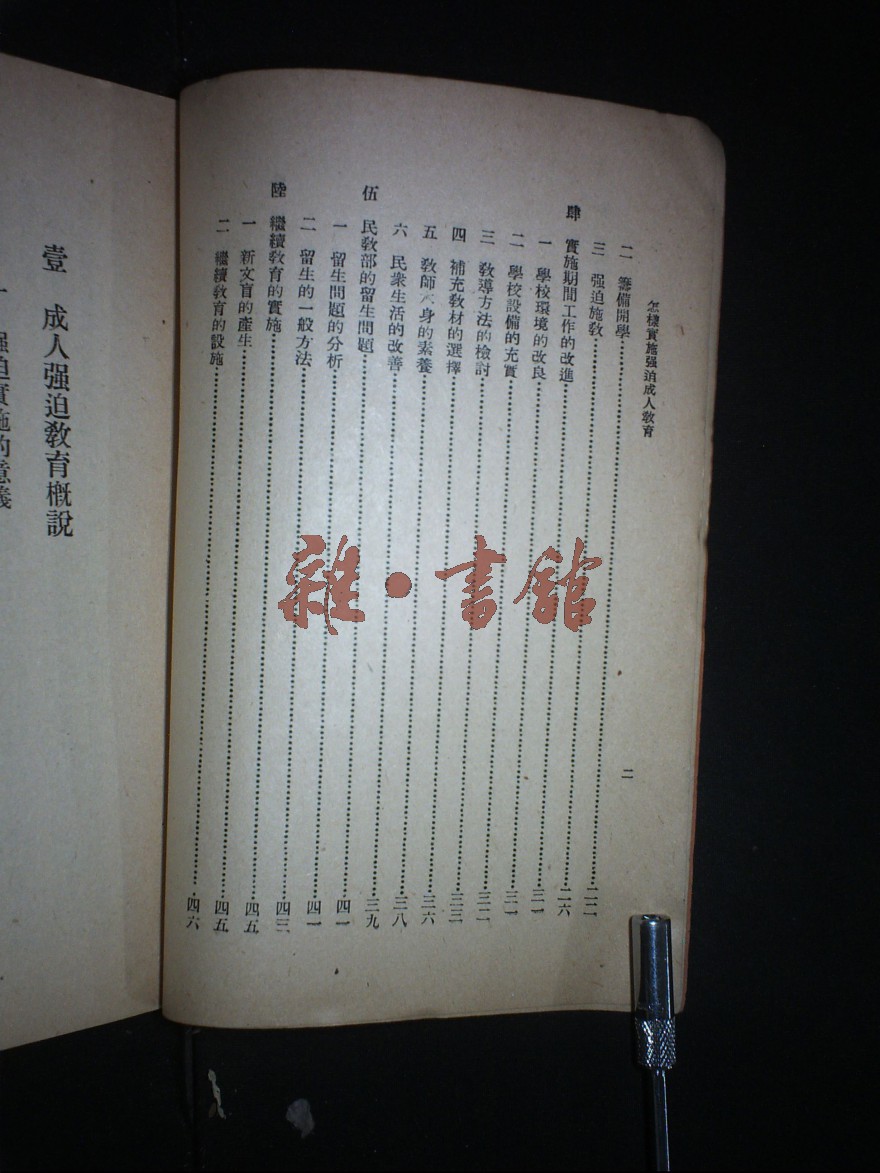 怎樣實施强迫成人教育
二 籌備開學……二二
三 强迫施教……二六
肆 實施期間工作的改進……三一
一 學校環境的改良……三一
二 學校設備的充實……三二
三 教導方法的檢討……三三
四 補充教材的選擇……三六
五 教師本身的素養……三八
六 民衆生活的改善……三九
伍 民教部的留生問題……四一
一 留生問題的分析……四一
二 留生的一般方法……四三
陸 繼續教育的實施……四五
一 新文盲的產生……四五
二 繼續教育的設施……四六
二
壹 成人强迫教育概說
一 强迫實施的意義
雜·書館